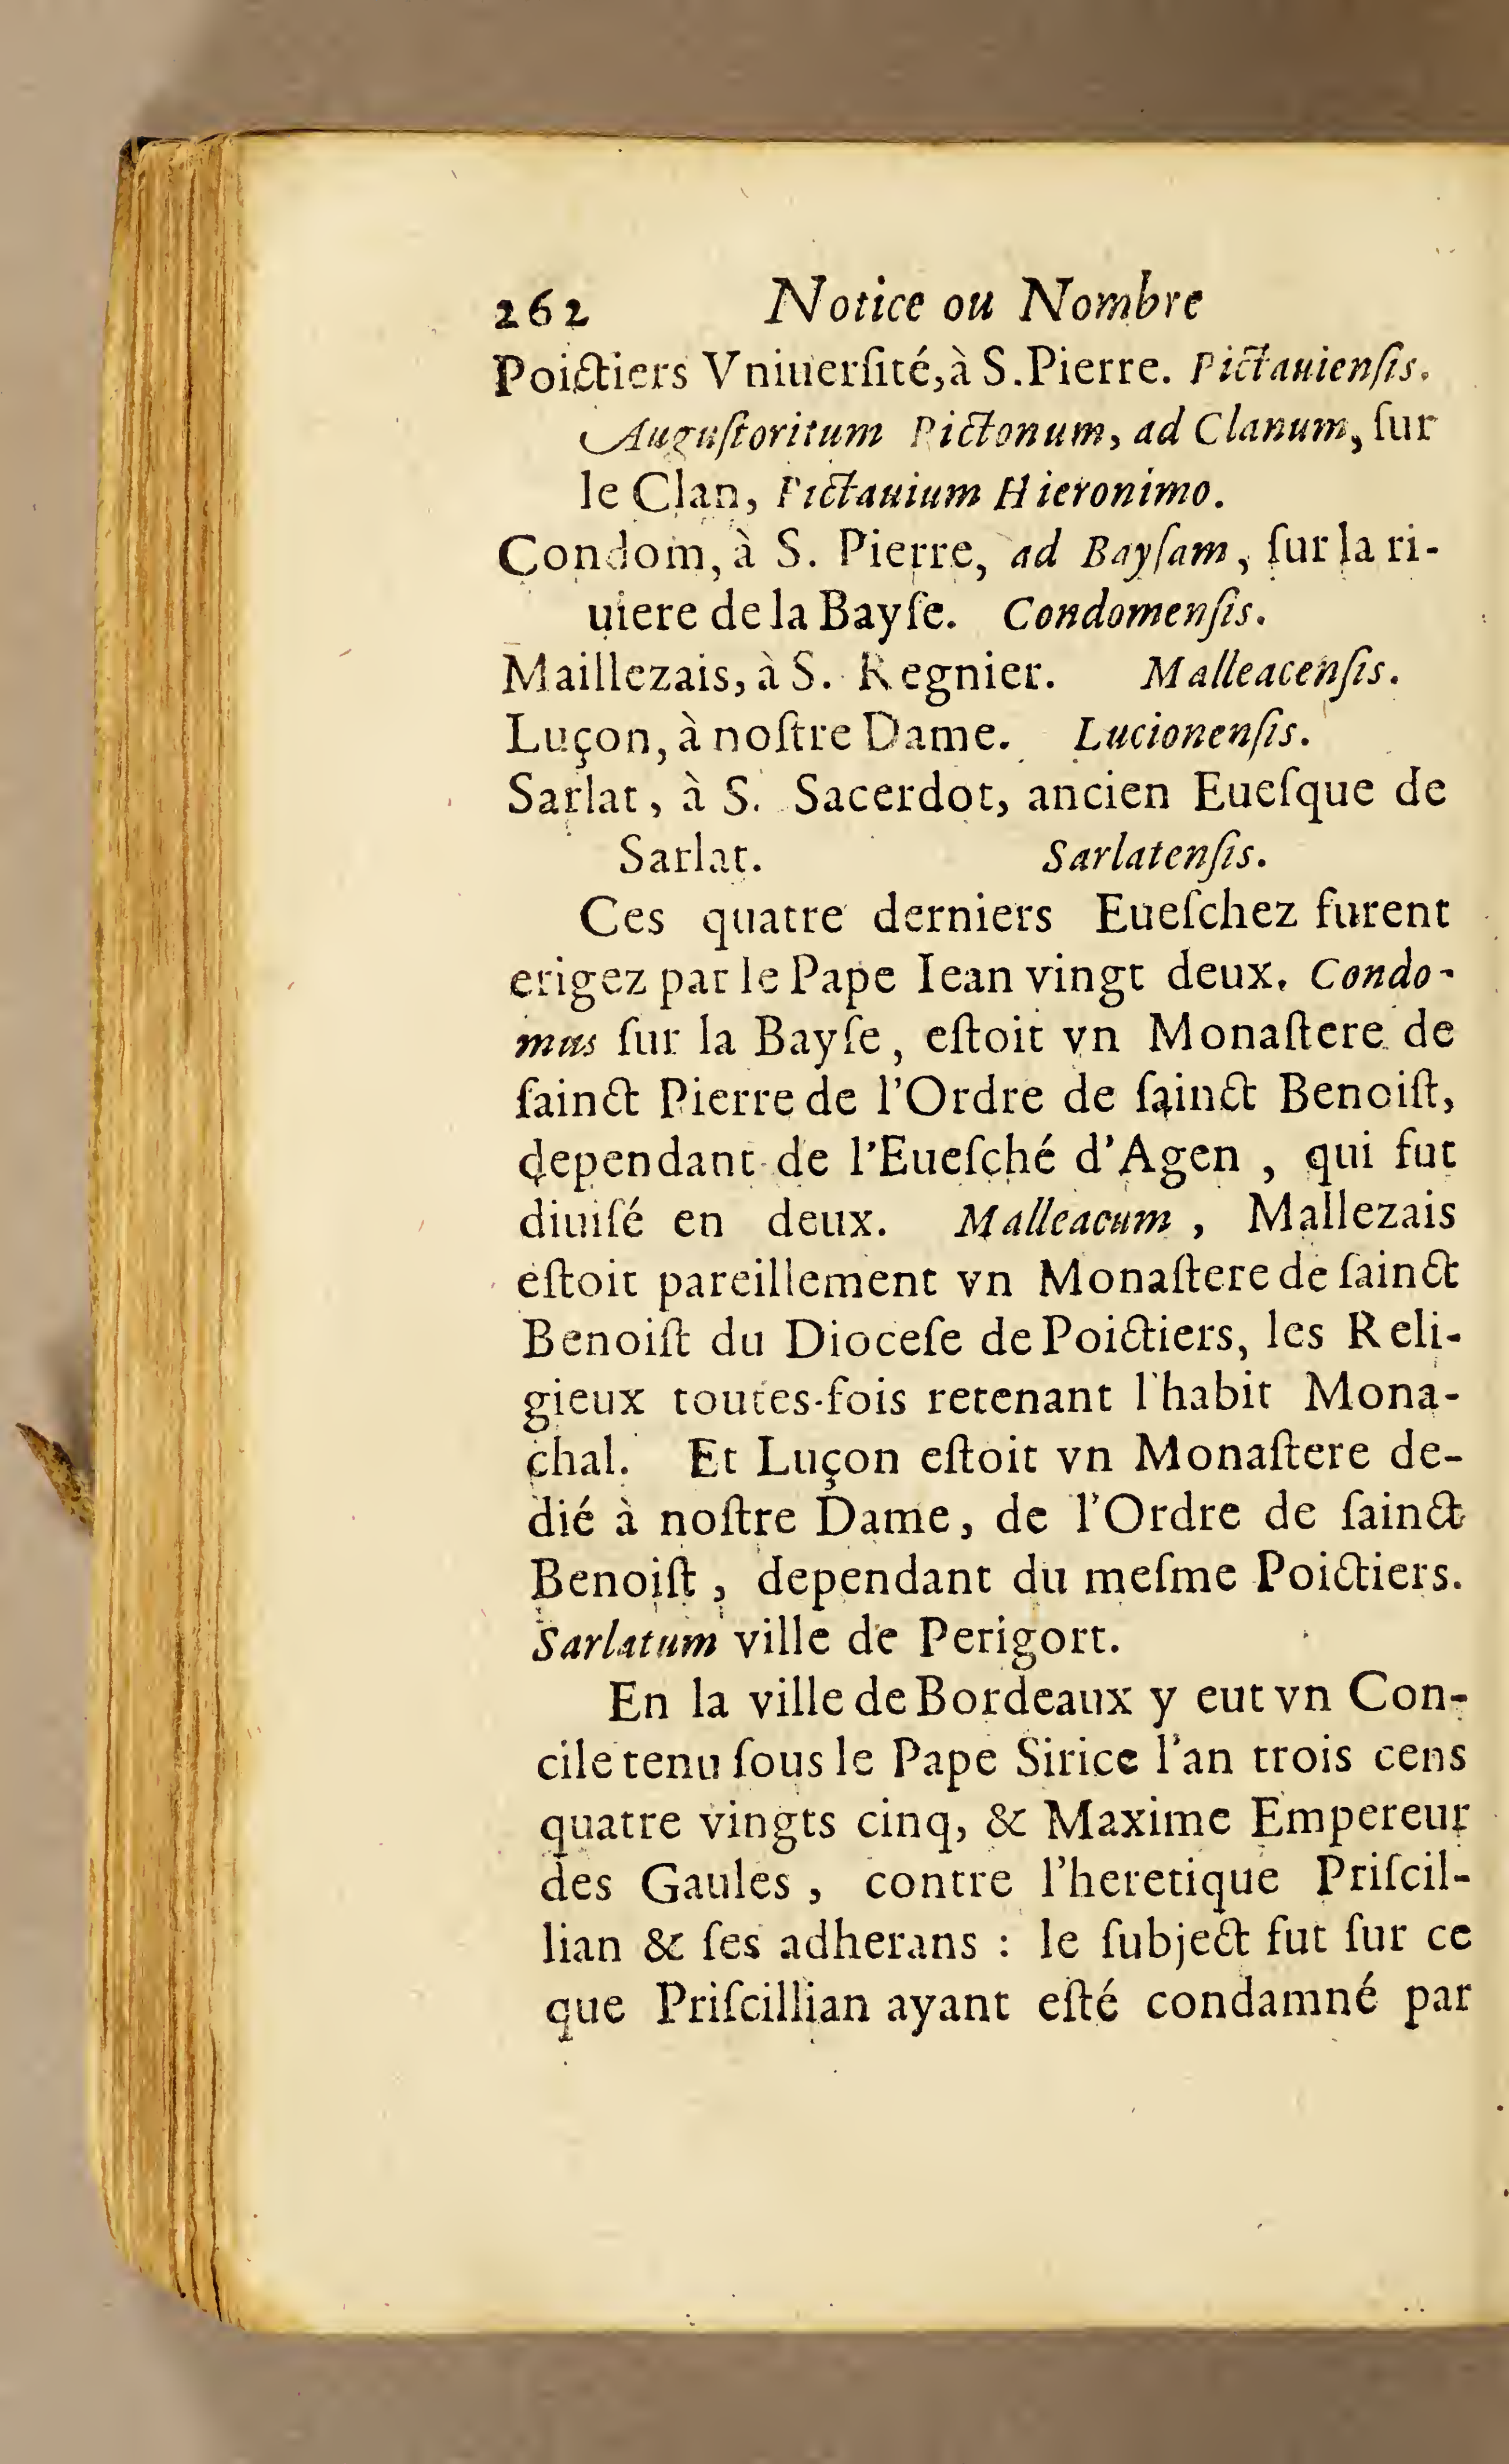 262 Notice ou Nombre
Poictiers Vniuerſité, à S. Pierre. Pictauienſis.
Auguſtoritum Pictonum, ad Clanum, ſur
le Clan, Pictauium Hieronimo.
Condom, à S. Pierre, ad Bayſam, ſur la ri-
uiere de la Bayſe. Condomenſis.
Maillezais, à S. Regnier. Malleacenſis.
Luçon, à noſtre Dame. Lucionenſis.
Sarlat, à S. Sacerdot, ancien Eueſque de
Sarlat. Sarlatenſis.
Ces quatre derniers Eueſchez furent
erigez par le Pape Iean vingt deux. Condo-
mus ſur la Bayſe, eſtoit vn Monaſtere de
ſainct Pierre de l'Ordre de ſainct Benoiſt,
dependant de l'Eueſché d'Agen, qui fut
diuiſé en deux. Malleacum, Mallezais
eſtoit pareillement vn Monaſtere de ſainct
Benoiſt du Dioceſe de Poictiers, les Reli-
gieux toutes-fois retenant l'habit Mona-
chal. Et Luçon eſtoit vn Monaſtere de-
dié à noſtre Dame, de l'Ordre de ſainct
Benoiſt, dependant du meſme Poictiers.
Sarlatum ville de Perigort.
En la ville de Bordeaux y eut vn Con-
cile tenu ſous le Pape Sirice l'an trois cens
quatre vingts cinq, & Maxime Empereur
des Gaules, contre l'heretique Priſcil-
lian & ſes adherans : le ſubject fut ſur ce
que Priſcillian ayant eſté condamné par